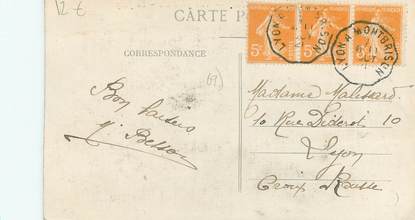 12 €
CARTE PO
5c 5c 5c
LYON A MONTBRISON
LYON A MONTBRISON
CORRESPONDANCE
(69)
Madame Malissard
10 Rue Diderot 10
Lyon
Croix Rousse
Bon baisers
M. Besson